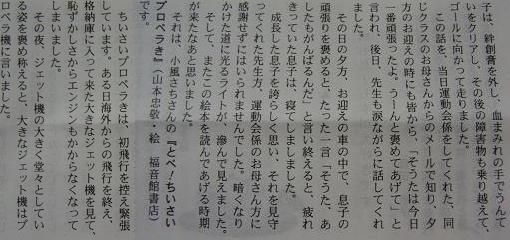 子は、絆創膏を外し、血まみれの手でうんて
いをクリアし、その後の障害物も乗り越えて、
ゴールに向かって走りました。
この話を、当日運動会係をしてくれた、同
じクラスのお母さんからのメールで知り、夕
方のお迎えの時にも皆から、「そうたは今日
一番頑張ったよ。うーんと褒めてあげて」と
言われ、後日、先生も涙ながらに話してくれ
ました。
その日の夕方、お迎えの車の中で、息子の
頑張りを褒めると、たった一言「そうた、あ
したもがんばるんだ」と言い終えると、疲れ
きっていた息子は、寝てしまいました。
成長した息子を誇らしく思い、それを見守
ってくれた先生方、運動会係のお母さん方に
感謝せずにはいられませんでした。暗くなり
かけた道に光るライトが、滲んで見えました。
そして、またこの絵本を読んであげる時期
が来たなあと思いました。
それは、小風さちさんの『とべ!ちいさい
プロペラき』(山本忠敬・絵 福音館書店)
です。
ちいさいプロペラきは、初飛行を控え緊張
しています。ある日海外からの飛行を終え、
格納庫に入って来た大きなジェット機を見て、
恥ずかしさからエンジンもかからなくなって
しまいました。
その夜、ジェット機の大きく堂々としてい
る姿を褒め称えると、大きなジェット機はプ
ロペラ機に言いました。